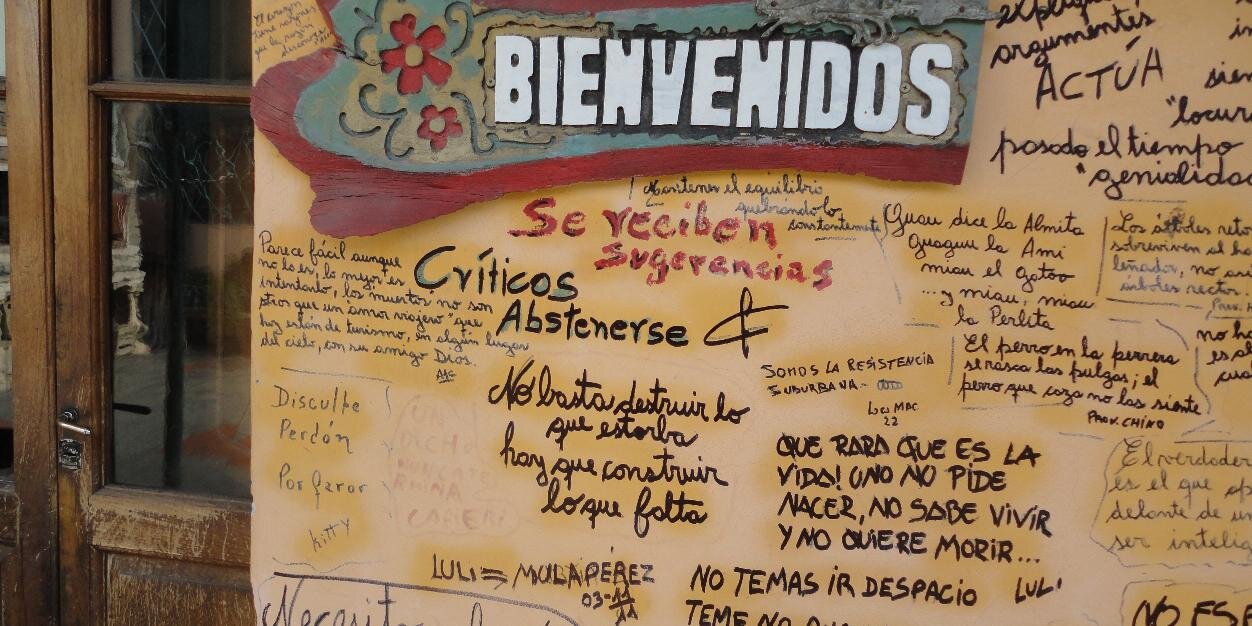 BIENVENIDOS
El corazón
tiene razones
que la razón
argumentos
ACTÚA
pasado el tiempo
Mantenes el equilibrio
quebrándolo
constantemente
Se reciben
Sugerencias
Críticos
Abstenerse
Parece fácil aunque
no lo es, lo mejor es
intentarlo, los muertos no son
otros que un amor viajero" que
hoy están de turismo, en algún lugar
del cielo, con su amigo Dios.
Guau dice la Almita
Guaguu la Ami
miau el gatoo
...y miau, miau
la Perlita
Los árboles
sobreviven al
leñador, no
árboles rectos.
El perro en la perrera
se rasca las pulgas; el
perro que caza no las siente
PROV. CHINO
SOMOS LA RESISTENCIA
SUBURBANA -
22
Disculpe
Perdón
Por favor
Kitty
UN
DICHO
No basta destruir lo
que estorba
hay que construir
lo que falta
QUE RARA QUE ES LA
VIDA! UNO NO PIDE
NACER, NO SABE VIVIR
Y NO QUIERE MORIR...
LULI
El verdader
es el que
delante de un
ser intelig
LULI = MULAPÉREZ
03-11
11
NO TEMAS IR DESPACIO
TEME NO
Necesito
NO ES